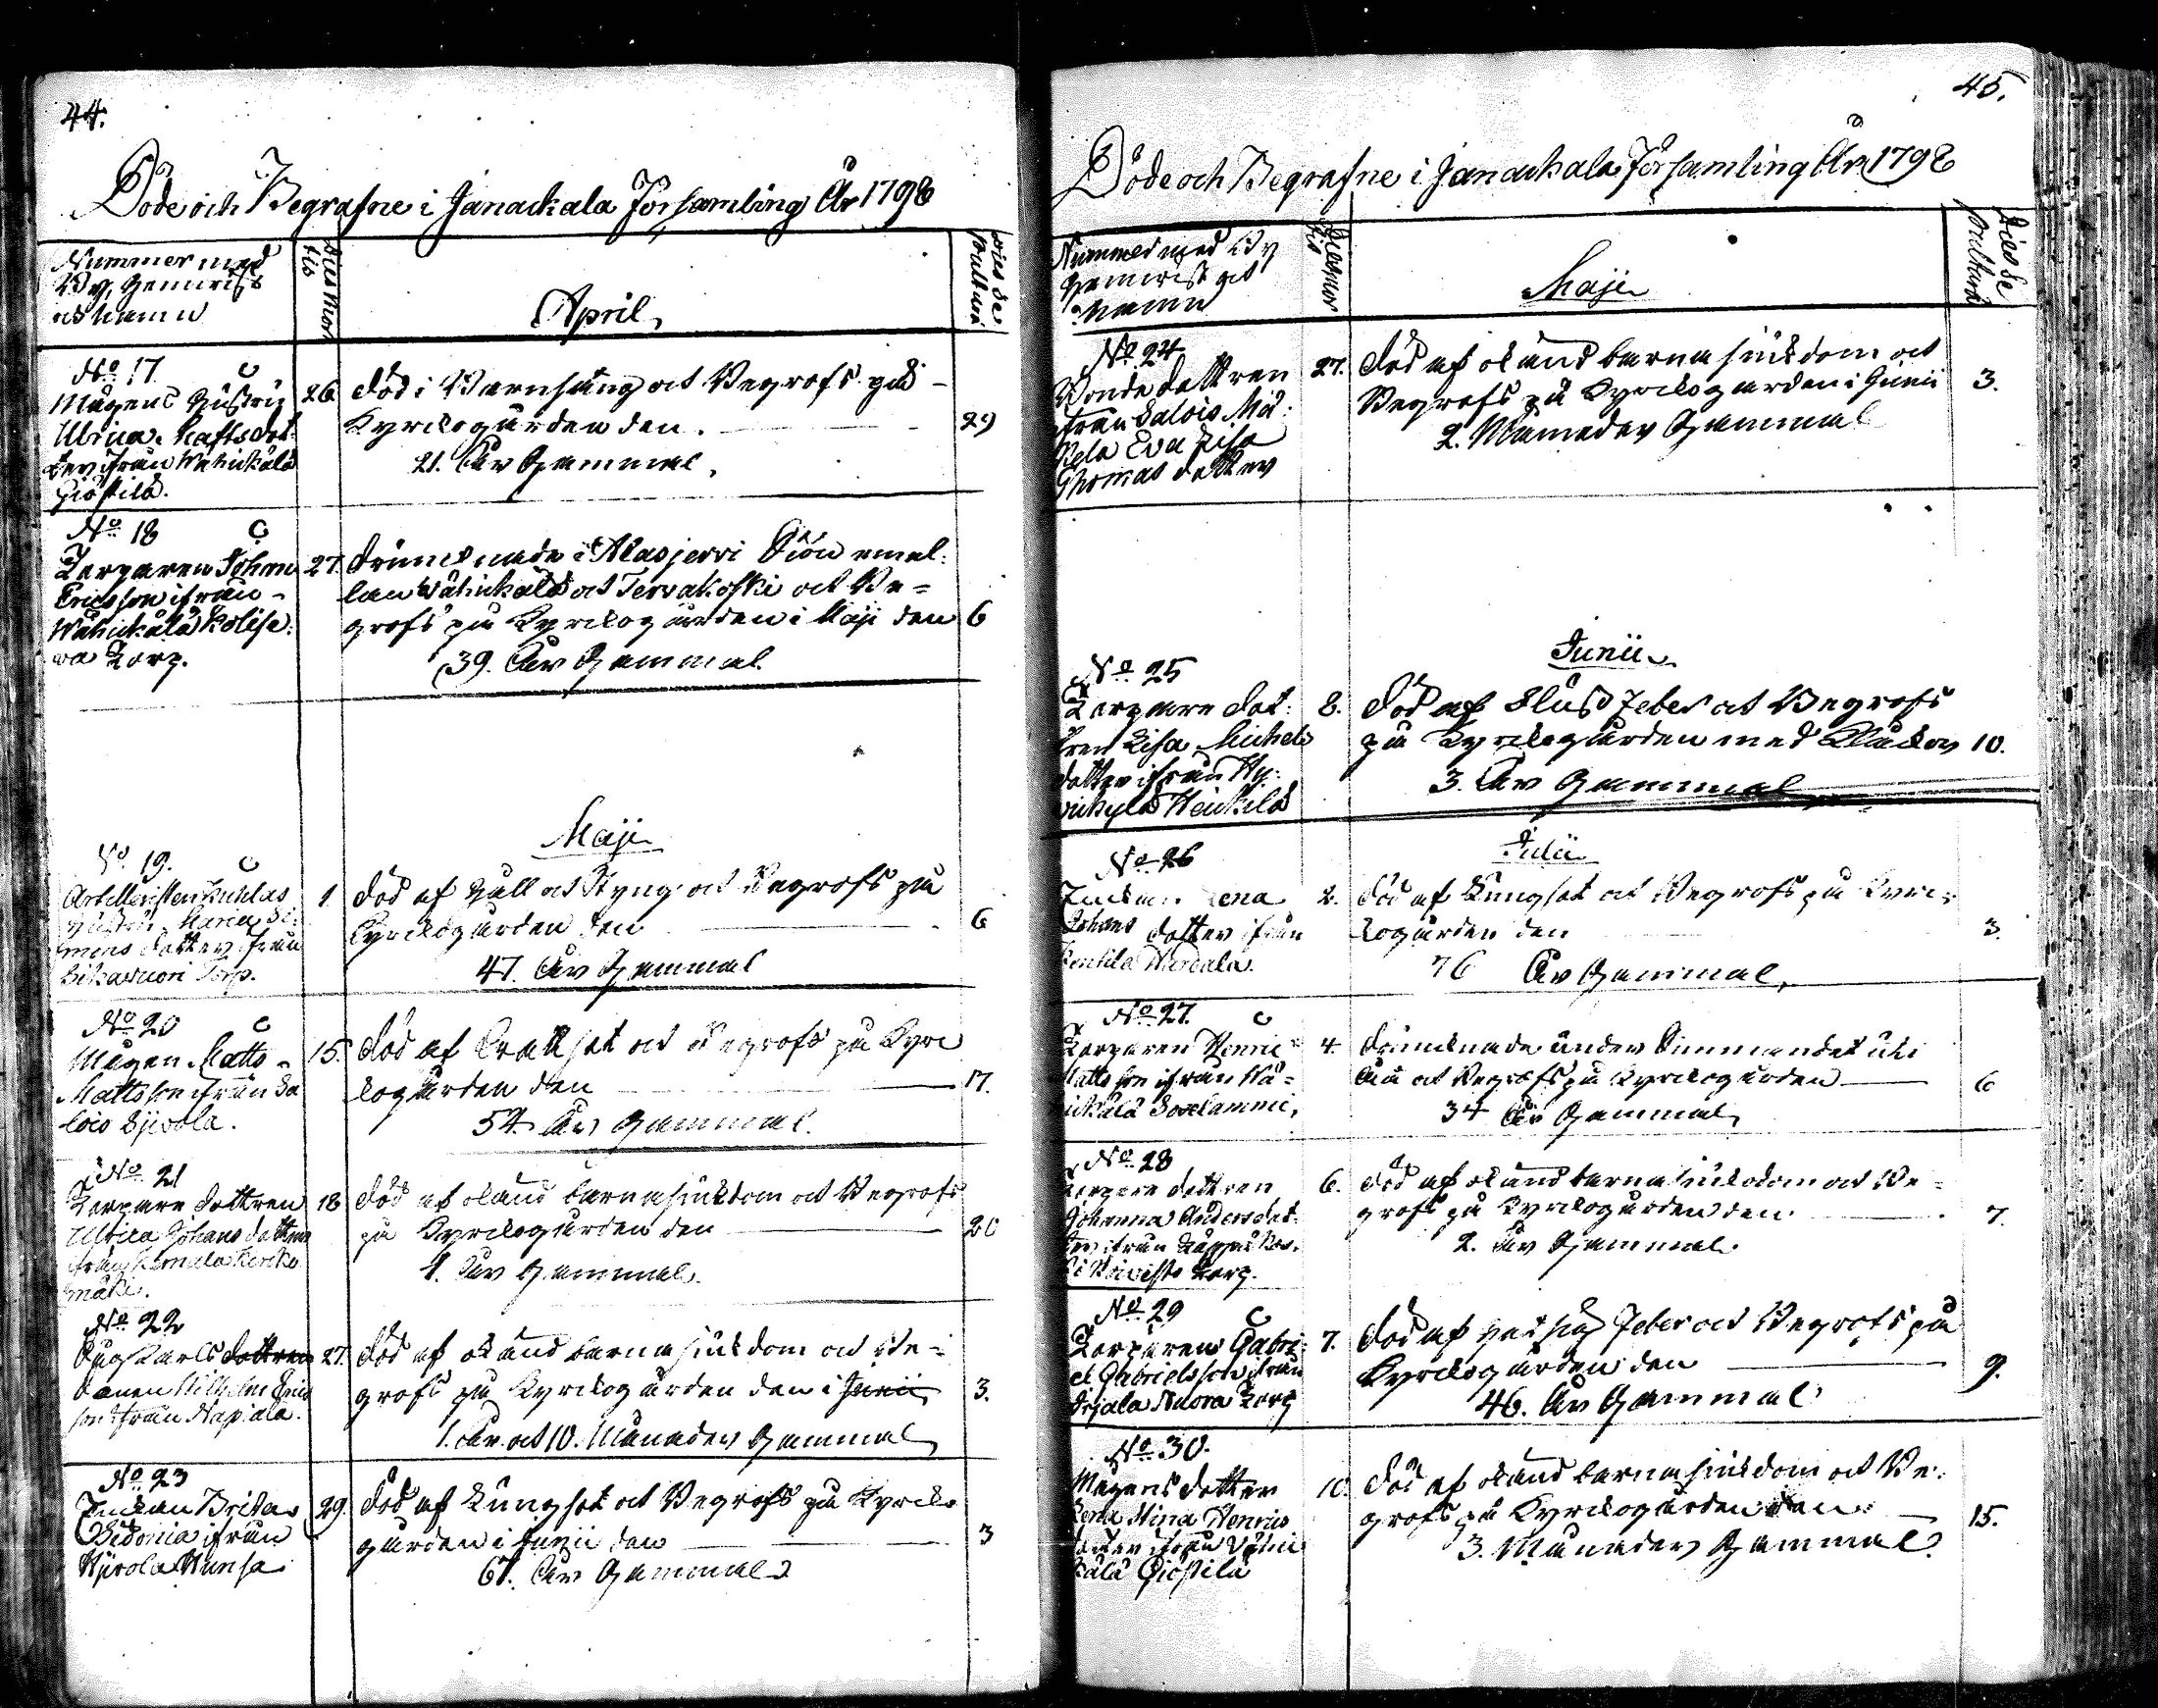 44.
Döde och Begrafne i Janackala Församling År 1798
Nummer med
By, Hemvist
och Namn
Dies Mor
tis
April
Dies Se
pulturæ
No 17
Mågens Hustru
Ulrica Mattsdot
ter ifrån Wähickälä
26
död i Barnsäng och Begrofs på
Kyrckogården den
29
21. År Gammal
No 18
Torparen Johan
Ericsson ifrån
Wähickälä
Torp.
27.
drunknade i Alasjervi Siön emel-
lan Wähickälä och Tervakoski och Be-
grofs på Kyrckogården i Maji den
6
39. År Gammal
Maji
No 19.
Hustru Maria Si-
mons dotter ifrån
Torp.
1.
död af Håll och Styng och Begrofs på
Kyrckogården den
6
47. År Gammal
No 20
Mågen Matts
Mattsson ifrån Sa
lois Syvola.
15.
död af Bråttsot och Begrofs på Kyrc
kogården den
17.
54. År Gammal.
No 21
Torpare dottren
Ulrica Johans dotter
ifrån
mäki.
18
död af okänd barnasiukdom och Begrofs
på Kyrckogården den
20
1. År Gammal.
No 22
dottren
Sonen Wilhelm Erics
son ifrån Napiala.
27.
död af okänd barnasiukdom och Be-
grofs på Kyrckogården den i Junii
3.
1. År och 10. Månader Gammal
No 23
Enckan Brita
Sidonia ifrån
Hyvola Hansa
29.
död af Lungsot och Begrofs på Kyrcko
gården i Junii den
3
67. År Gammal
45.
Döde och Begrafne i Janackala Församling År 1798
Nummer med By
Hemvist och
Namn
Dies Mor
tis
Maji
Dies Se
pulturæ
No 24
Bonde dottren
ifrån Salois Mä-
kelä Eva Lisa
Thomas dotter
27.
död af okänd barna siukdom och
Begrofs på Kyrckogården i Junii
3.
2. Månader Gammal
Junii
No 25
Torpare dot-
tren Lisa Michels
dotter ifrån Hy-
vickylä Heickilä
8.
död af Feber och Begrofs
på Kyrckogården med Klåckor
10.
3. År Gammal
Julii
No 26
Enckan Lena
Johans dotter ifrån
2.
död af Lungsot och Begrofs på Kyrc-
kogården den
3.
76 År Gammal
No 27.
Torparen Henric
Matts son ifrån Wä-
hickälä
4.
drunknade under Simmandet uti
Åån och Begrofs på Kyrckogården
6
34 År Gammal
No 28
Torpare dottren
Johanna Anders dot-
ter ifrån
Torp.
6.
död af okänd barna siukdom och Be-
grofs på Kyrckogården den
7.
2. År Gammal.
No 29
Torparen Gabri-
el Gabrielsson ifrån
Torp
7.
död af hetsig Feber och Begrofs på
Kyrckogården den
9.
46. År Gammal
No 30.
Mågens dotter
Lena Stina Henrics
dotter ifrån Wähic
kälä
10.
död af okänd barna siukdom och Be-
grofs på Kyrckogården den
15.
3. Månader Gammal